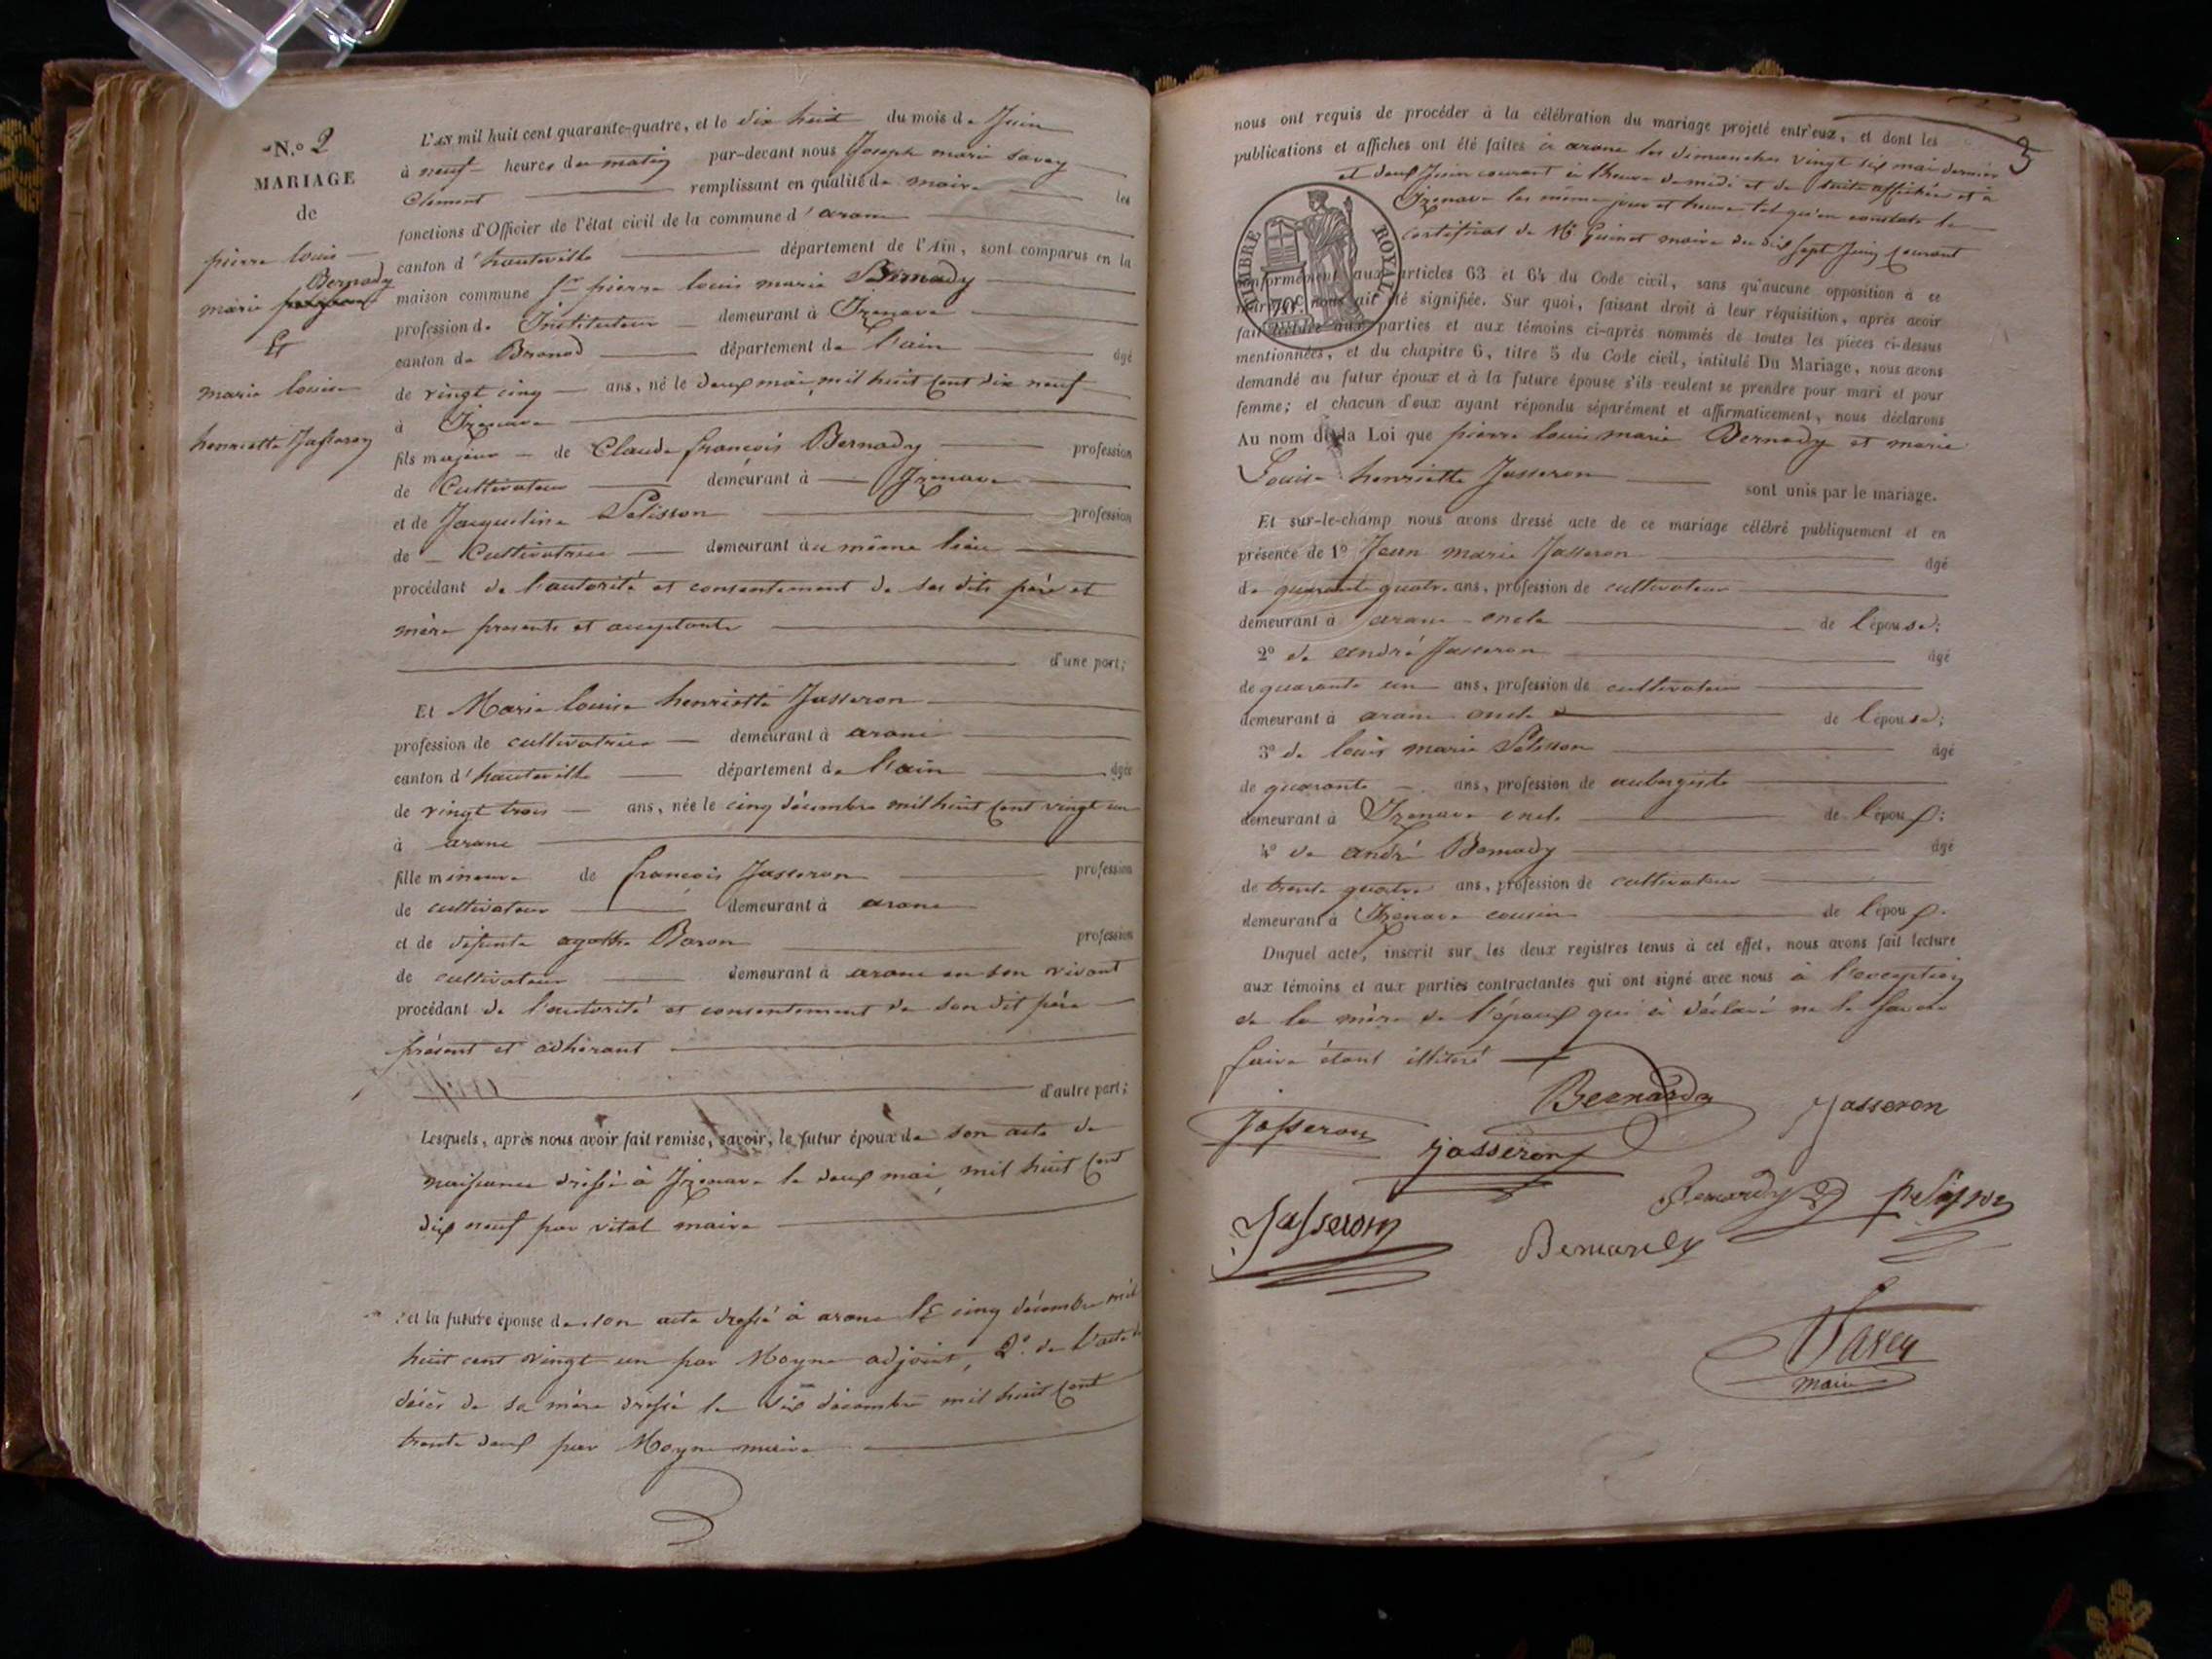 N.º 2
MARIAGE
de
pierre louis
Bernady
marie
Et
marie louise
henriette Jasseron
L'AN mil huit cent quarante-quatre, et le dix huit du mois de Juin
à neuf heures du matin par-devant nous Joseph marie savey
Clement remplissant en qualité de maire les
fonctions d'Officier de l'état civil de la commune d'arane
canton d'hauteville département de l'Ain, sont comparus en la
maison commune Sr pierre louis marie Bernady
profession de Instituteur demeurant à Izenave
canton de Brenod département de l'ain âgé
de vingt cinq ans, né le deux mai mil huit cent dix neuf
à Izenave
fils majeur de Claude françois Bernady profession
de Cultivateur demeurant à Izenave
et de Jacqueline Pelisson profession
de Cultivatrice demeurant au même lieu
procédant de l'autorité et consentement de ses dits père et
mère presents et acceptants
d'une part;
Et Marie louise henriette Jasseron
profession de cultivatrice demeurant à arane
canton d'hauteville département de l'ain âgée
de vingt trois ans, née le cinq décembre mil huit cent vingt un
à arane
fille mineure de françois Jasseron profession
de cultivateur demeurant à arane
et de défunte agathe Baron profession
de cultivateur demeurant à arane en son vivant
procédant de l'autorité et consentement de son dit père
présent et adhérant
d'autre part;
Lesquels, après nous avoir fait remise, savoir, le futur époux de son acte de
naissance dressé à Izenave le deux mai mil huit cent
dix neuf par vital maire
et la future épouse de son acte dressé à arane le cinq décembre mil
huit cent vingt un par Moyne adjoint, 2º. de l'acte de
décès de sa mère dressé le six décembre mil huit cent
trente deux par Moyne maire
3
nous ont requis de procéder à la célébration du mariage projeté entr'eux, et dont les
publications et affiches ont été faites à arane les dimanches vingt six mai dernier
et deux Juin courant à l'heure de midi et de suite affichées et à
Izenave les même jour et heure tel qu'en constate le
certificat de Mr Guinet maire du dix sept Juin courant
TIMBRE ROYAL
70c
conformément aux articles 63 et 64 du Code civil, sans qu'aucune opposition à ce
mariage nous ait été signifiée. Sur quoi, faisant droit à leur réquisition, après avoir
fait lecture aux parties et aux témoins ci-après nommés de toutes les pièces ci-dessus
mentionnées, et du chapitre 6, titre 5 du Code civil, intitulé Du Mariage, nous avons
demandé au futur époux et à la future épouse s'ils veulent se prendre pour mari et pour
femme; et chacun d'eux ayant répondu séparément et affirmativement, nous déclarons
Au nom de la Loi que pierre louis marie Bernady et marie
Louise henriette Jasseron sont unis par le mariage.
Et sur-le-champ nous avons dressé acte de ce mariage célébré publiquement et en
présence de 1º Jean marie Jasseron âgé
de quarante quatre ans, profession de cultivateur
demeurant à arane oncle de l'épouse;
2º de andré Jasseron âgé
de quarante un ans, profession de cultivateur
demeurant à arane oncle de l'épouse;
3º de louis marie Pelisson âgé
de quarante ans, profession de aubergiste
demeurant à Izenave oncle de l'époux;
4º de andré Bernady âgé
de trente quatre ans, profession de cultivateur
demeurant à Izenave cousin de l'époux.
Duquel acte, inscrit sur les deux registres tenus à cet effet, nous avons fait lecture
aux témoins et aux parties contractantes qui ont signé avec nous à l'exception
de la mère de l'époux qui à déclaré ne le savoir
faire étant illitéré
Bernardy
Jasseron
Josseron
Jasseron
Bernardy
pelisson
Jasseron
Bernardy
Savey
maire